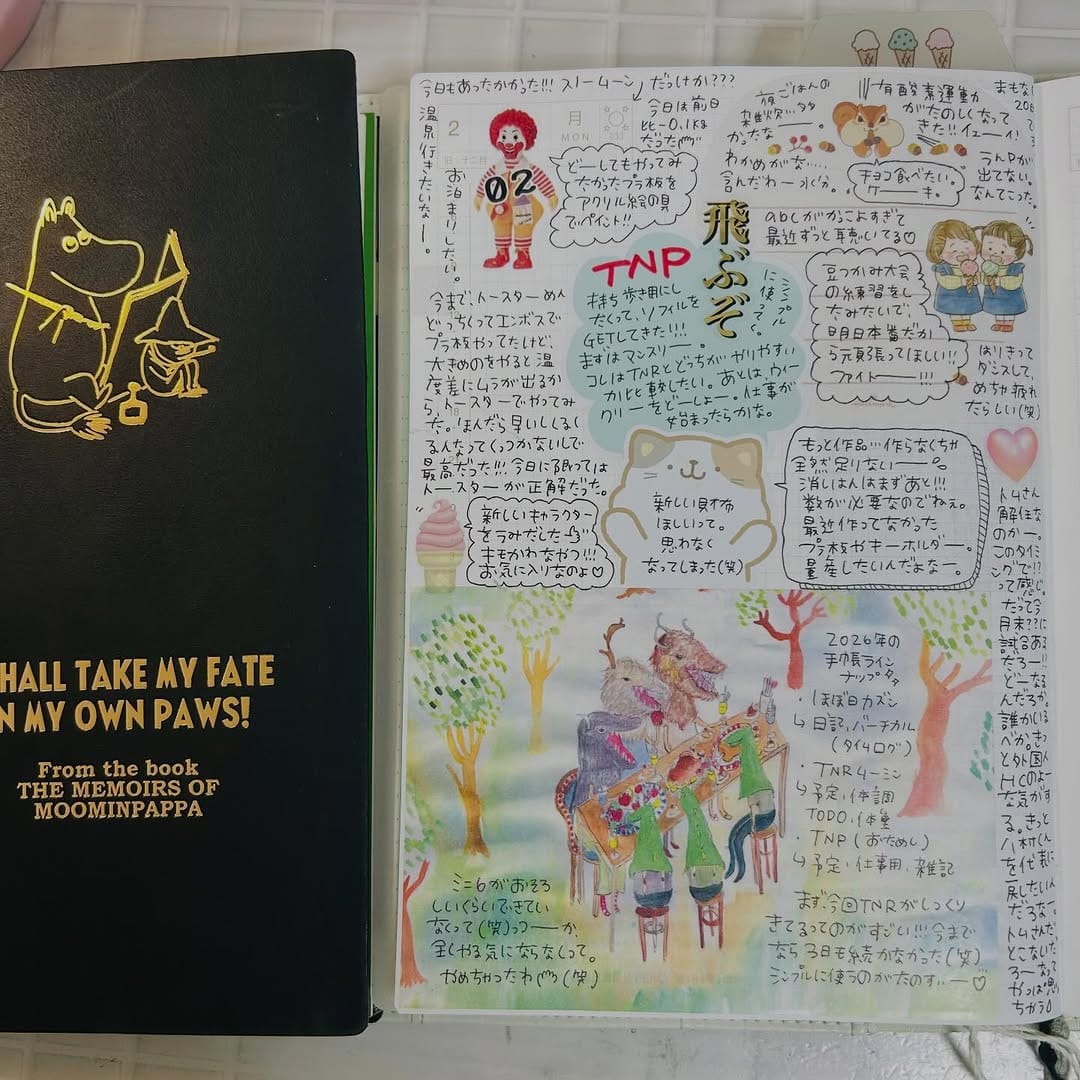 HALL TAKE MY FATE
N MY OWN PAWS!
From the book
THE MEMOIRS OF
MOOMINPAPPA
今日もあったかかった!!! スノームーン だっけか???
温泉行きたいなー。
お泊まりしたい。
2
月
MON
02
今日は前日
比-0.1kg
だった
どーしてもやってみ
たかったプラ板を
アクリル絵の具
でペイント!!
夜ごはんの
雑炊…
かったなー。
わかめがな…
含んだわー水分。
有酸素運動
がたのしくなって
きた!!イェーイ!
チョコ食べたい。
ケーーキ。
まもな
20日
うんPが
出てない。
なんてこった。
飛ぶぞ
がかっこよすぎて
最近ずっと聴いてる♡
TNP
持ち歩き用にし
たくって、リフィルを
GETしてきた!!!
まずはマンスリー。
コレはTNRとどっちがやりやすい
か比較したい。あとは、ウィー
クリーをどーしよー。仕事が
始まったらかな。
シンプル
に使ってく。
豆つかみ大会
の練習をし
たみたいで、
明日本番だか
ら元気に頑張ってほしい!!
ファイトーー!!!
はりきって
ダンスして、
めちゃ疲れ
たらしい(笑)
今まで、トースターめん
どっちくってエンボスで
プラ板やってたけど、
大きめのをやると温
度差にムラが出るか
ら、トースターでやってみ
た。ほんだら早いしくるし
るんなってくっつかないしで
最高だった!!! 今日に限っては
トースターが正解だった。
新しいキャラクター
をうみだした
キモかわなやつ!!!
お気に入りなのよ♡
新しい財布
ほしいって。
思わなく
なってしまった(笑)
もっと作品…作らなくちゃ
全然足りないーー。
消しはんはまずあと!!!
数が必要なのでねぇ。
最近作ってなかった
プラ板やキーホルダー。
量産したいんだよなー。
トムさん
解任な
のかー。
このタイミ
ングで!?
って感じ。
だって今
月末??に
試合ある
だろー!!
どーなる
んだろか。
誰かいる
べか。きっ
と外国人
HCのよー
な気がす
る。きっと
八村くん
を代表に
戻したいん
だろな。
トムさんだ
とこないだ
ろーなって
やっぱ思っ
ちゃう
2026年の
手帳ライン
ナップ
・ほぼ日カズン
↳ 日記、バーチカル
(タイムログ)
・TNRムーミン
↳ 予定、体調
TODO、体重
・TNP (おためし)
↳ 予定、仕事用、雑記
ミニ6がおそろ
しいくらいできてい
なくって(笑)っつーーか、
全くやる気にならなくって。
やめちゃったわ(笑)
まず、今回TNRがしっくり
きてるってのがすごい!!! 今まで
なら3日も続かなかった(笑)
シンプルに使うのがたのすぃー♡